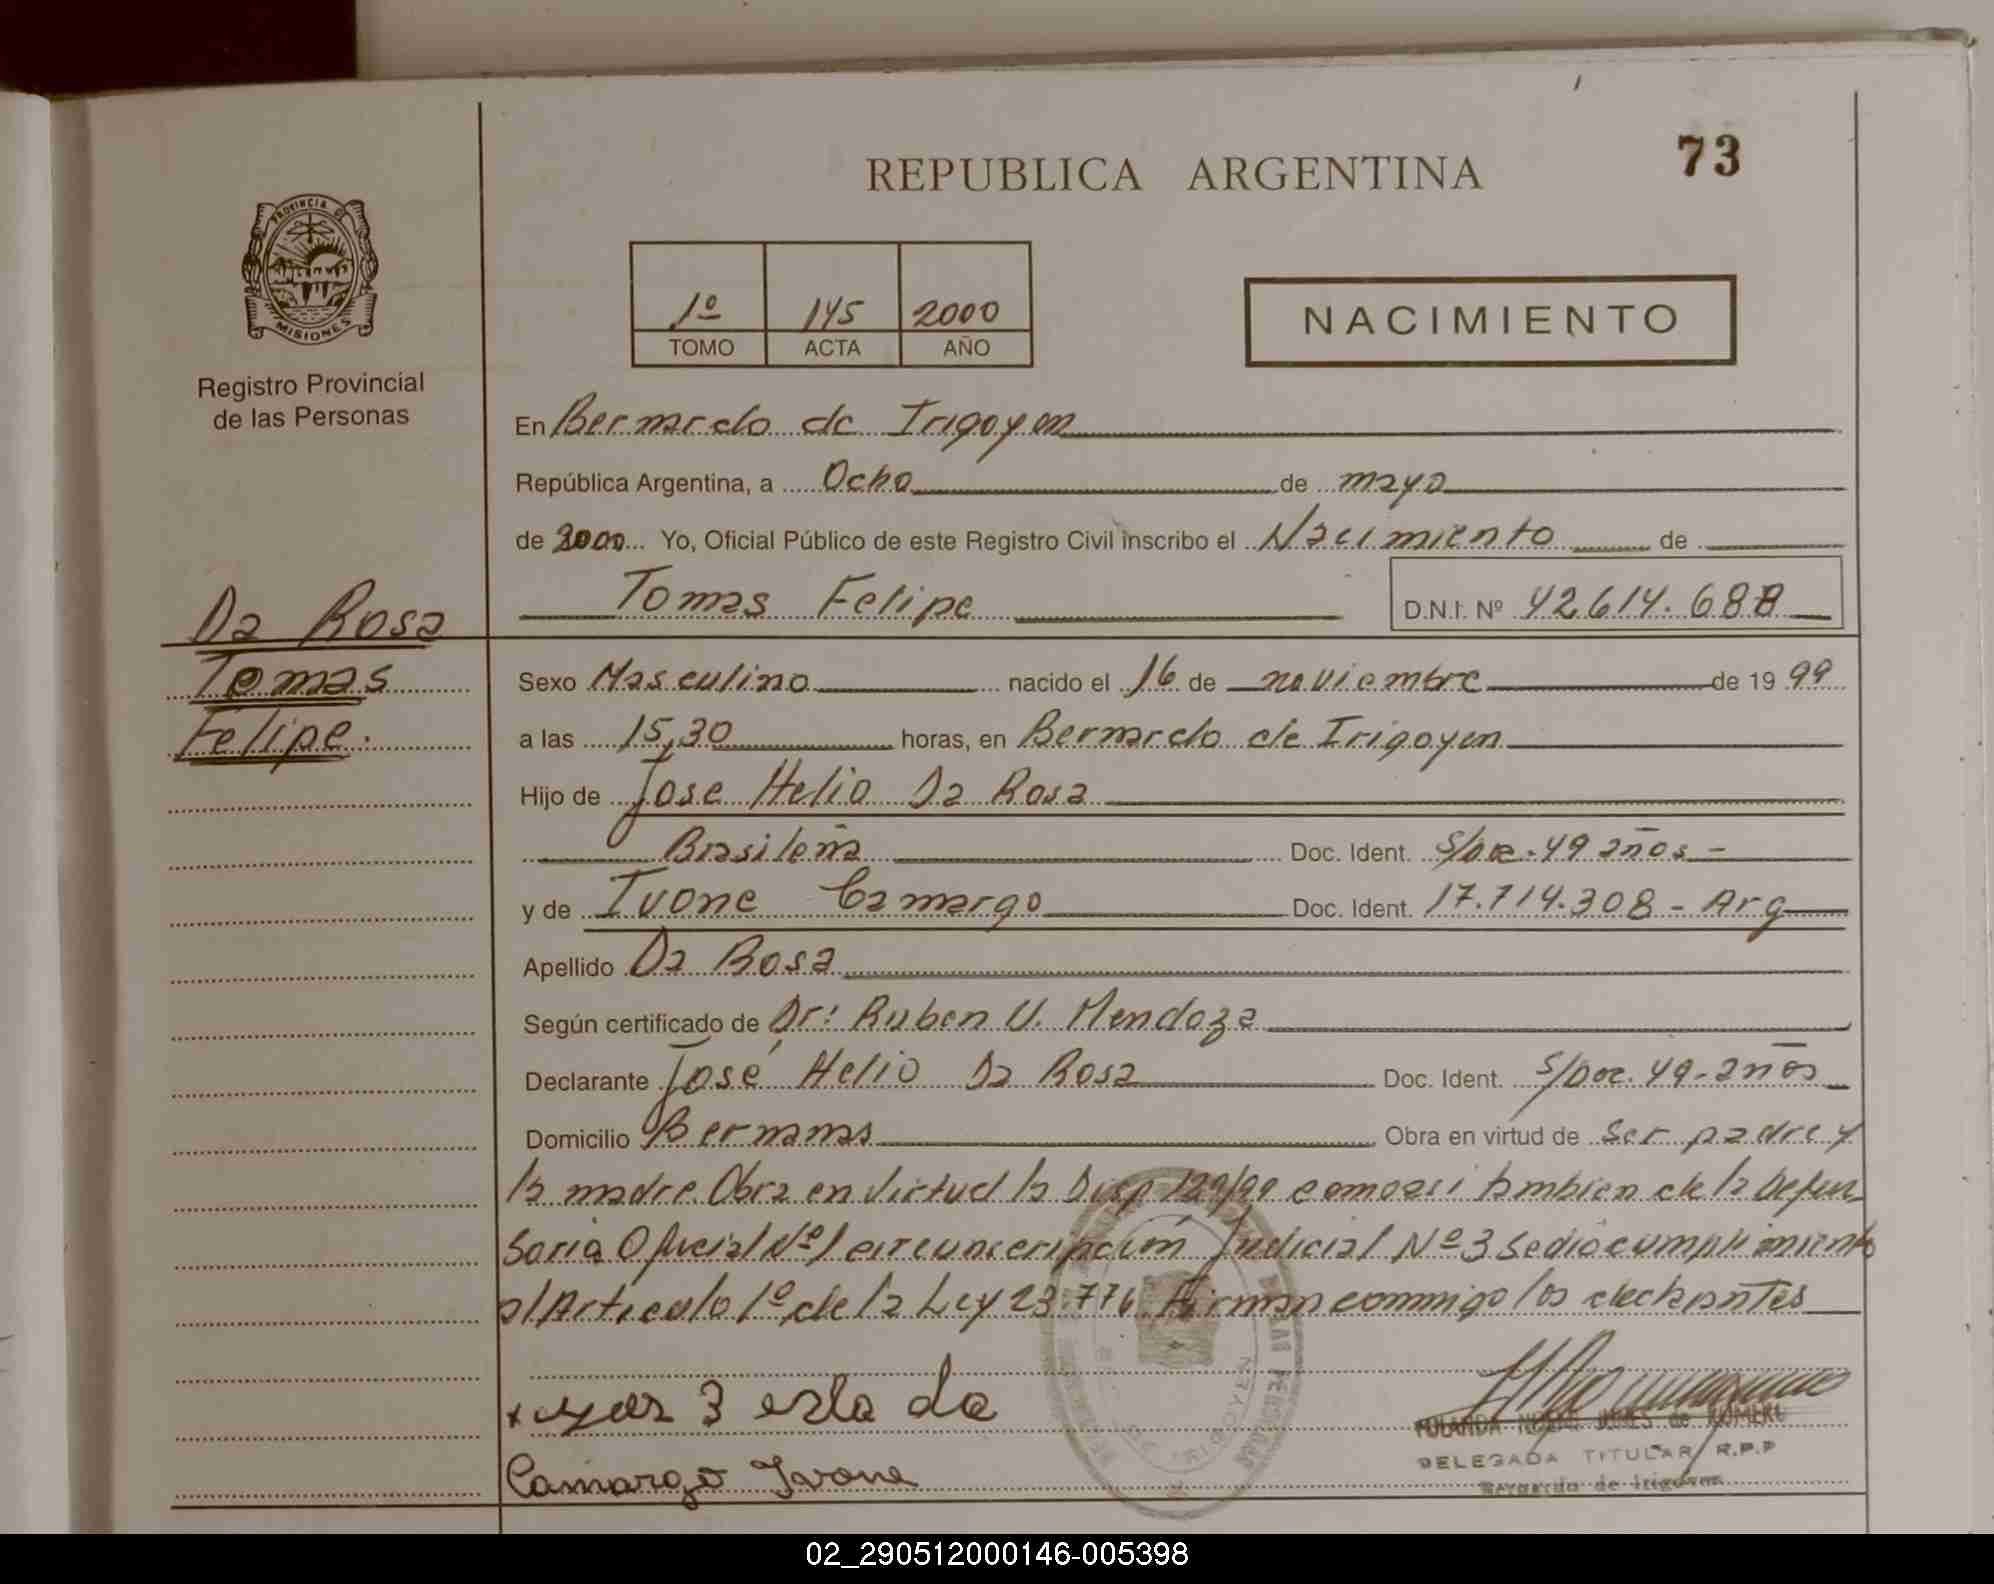 73
REPUBLICA ARGENTINA
PROVINCIA DE
MISIONES
Registro Provincial
de las Personas
1º 145 2000
TOMO ACTA AÑO
NACIMIENTO
En Bernardo de Irigoyen
República Argentina, a Ocho de mayo
de 2000 Yo, Oficial Público de este Registro Civil inscribo el Nacimiento de
Tomas Felipe D.N.I. Nº 42.614.688
Da Rosa
Tomas
Felipe.
Sexo Masculino nacido el 16 de noviembre de 1999
a las 15,30 horas, en Bernardo de Irigoyen
Hijo de Jose Helio Da Rosa
Brasileña Doc. Ident. S/Doc. 49 años -
y de Ivone Camargo Doc. Ident. 17.714.308 - Arg
Apellido Da Rosa
Según certificado de Dr: Ruben U. Mendoza
Declarante José Helio Da Rosa Doc. Ident. S/Doc. 49 - años
Domicilio Obra en virtud de ser padre y
la madre. Obra en virtud la Disp 129/99 como asi tambien de la Defen
soria Oficial Nº 1 circunscripción Judicial Nº 3 se dió cumplimiento
al Articulo 1º de la Ley 23.776 Firman conmigo los declarantes
Camargo Ivone
DELEGADA TITULAR R.P.P
Bernardo de Irigoyen
02_290512000146-005398